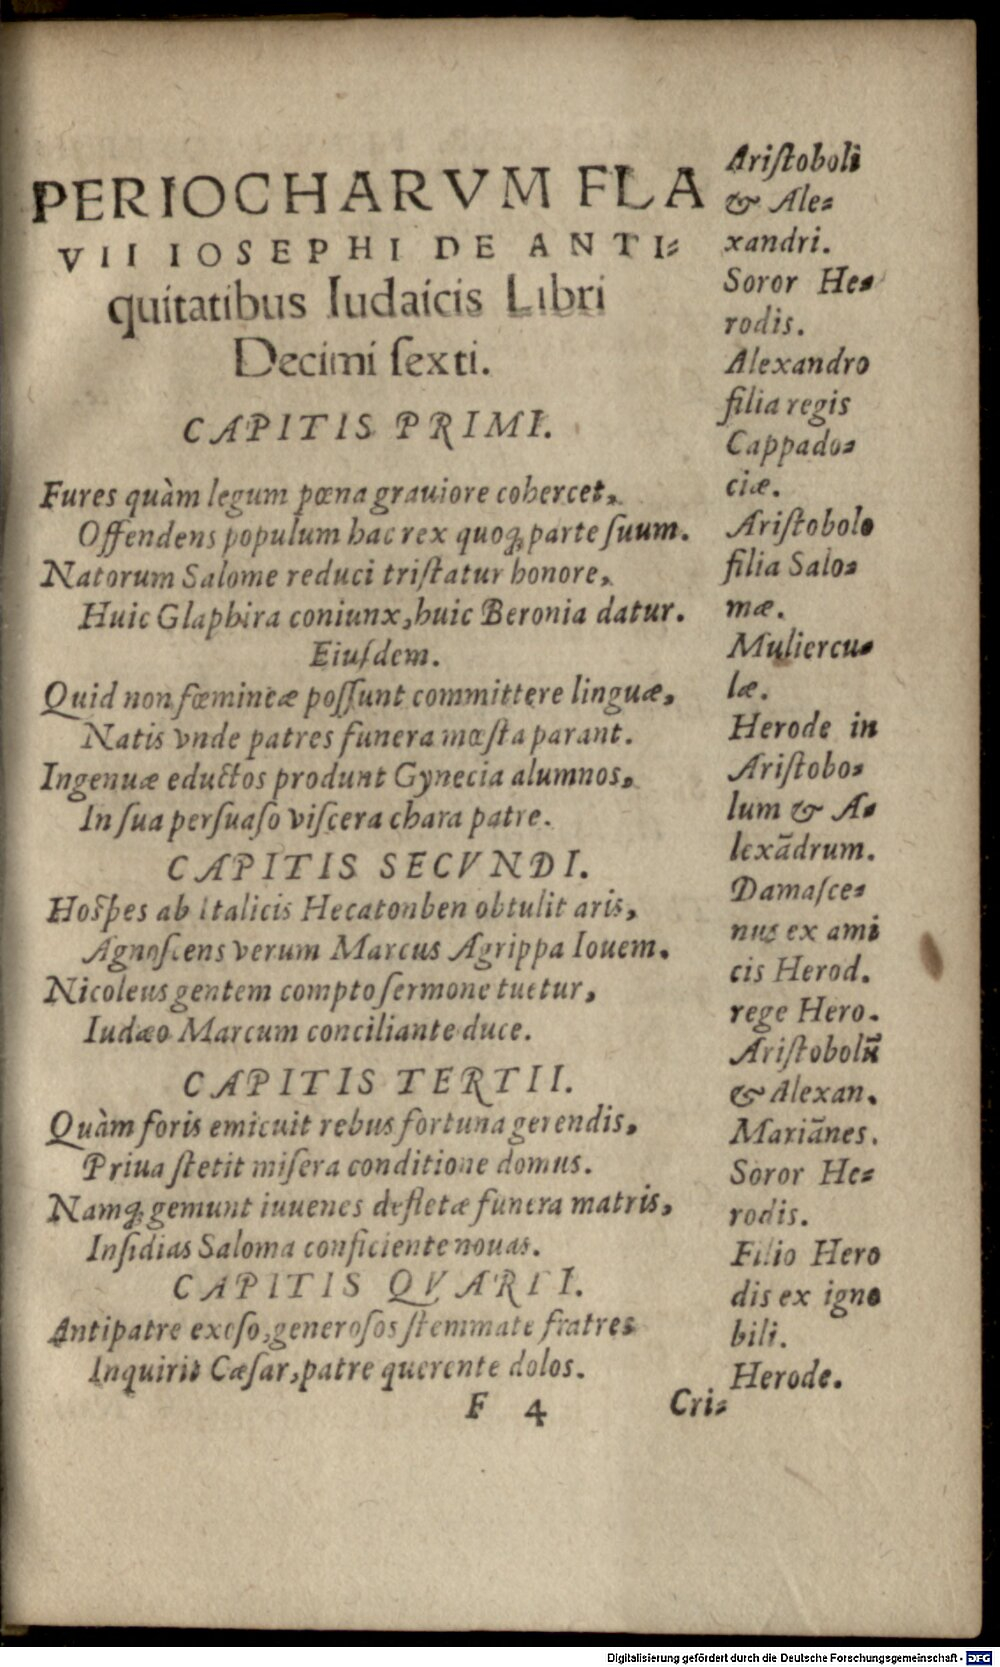 PERIOCHARVM FLA
VII IOSEPHI DE ANTI⸗
quitatibus Iudaicis Libri
Decimi ſexti.
CAPITIS PRIMI.
Fures quàm legum pœna grauiore cohercet,
Offendens populum hac rex quoq; parte ſuum.
Natorum Salome reduci triſtatur honore,
Huic Glaphira coniunx, huic Beronia datur.
Eiuſdem.
Quid non fœmineæ poſſunt committere linguæ,
Natis vnde patres funera mœſta parant.
Ingenuæ eductos produnt Gynecia alumnos,
In ſua perſuaſo viſcera chara patre.
CAPITIS SECVNDI.
Hoſpes ab Italicis Hecatonben obtulit aris,
Agnoſcens verum Marcus Agrippa Iouem.
Nicoleus gentem compto ſermone tuetur,
Iudæo Marcum conciliante duce.
CAPITIS TERTII.
Quàm foris emicuit rebus fortuna gerendis,
Priua ſtetit miſera conditione domus.
Namq; gemunt iuuenes defletæ funera matris,
Inſidias Saloma conficiente nouas.
CAPITIS QVARTI.
Antipatre exoſo, generoſos ſtemmate fratres
Inquirit Cæſar, patre querente dolos.
F 4
Cri⸗
Ariſtoboli
& Ale⸗
xandri.
Soror He⸗
rodis.
Alexandro
filia regis
Cappado⸗
ciæ.
Ariſtobolo
filia Salo⸗
mæ.
Muliercu⸗
læ.
Herode in
Ariſtobo⸗
lum & A⸗
lexãdrum.
Damaſce⸗
nus ex ami
cis Herod.
rege Hero.
Ariſtobolũ
& Alexan.
Mariãnes.
Soror He⸗
rodis.
Filio Hero
dis ex igno
bili.
Herode.
Digitalisierung gefördert durch die Deutsche Forschungsgemeinschaft - DFG